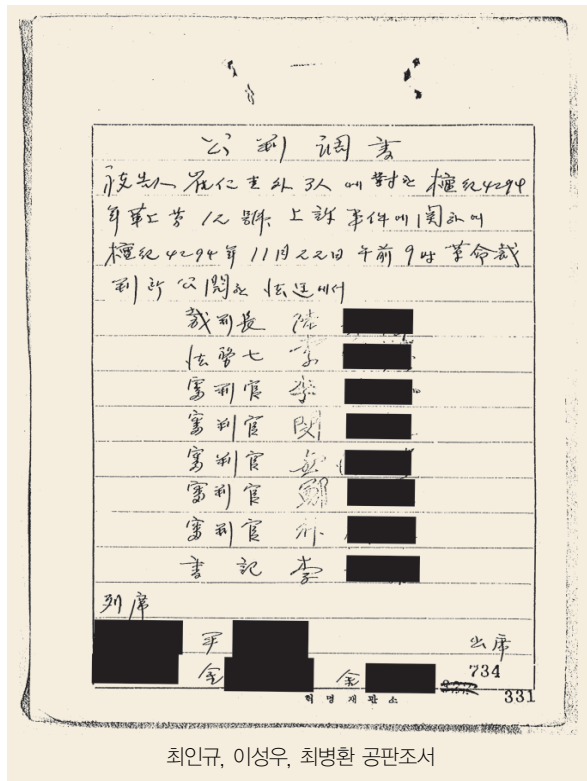 公判調書
被告人 崔仁圭外 3人에 對한 檀紀4294
年革上第12號 上訴事件에 關하여
檀紀4294年11月22日 午前9時 革命裁
判所 公開한 法廷에서
裁判長 陸
法務士 李
審判官 李
審判官 閔
審判官
審判官 鄭
審判官
書記 李
列席
出席
金 金
734
331
혁명재판소
최인규, 이성우, 최병환 공판조서